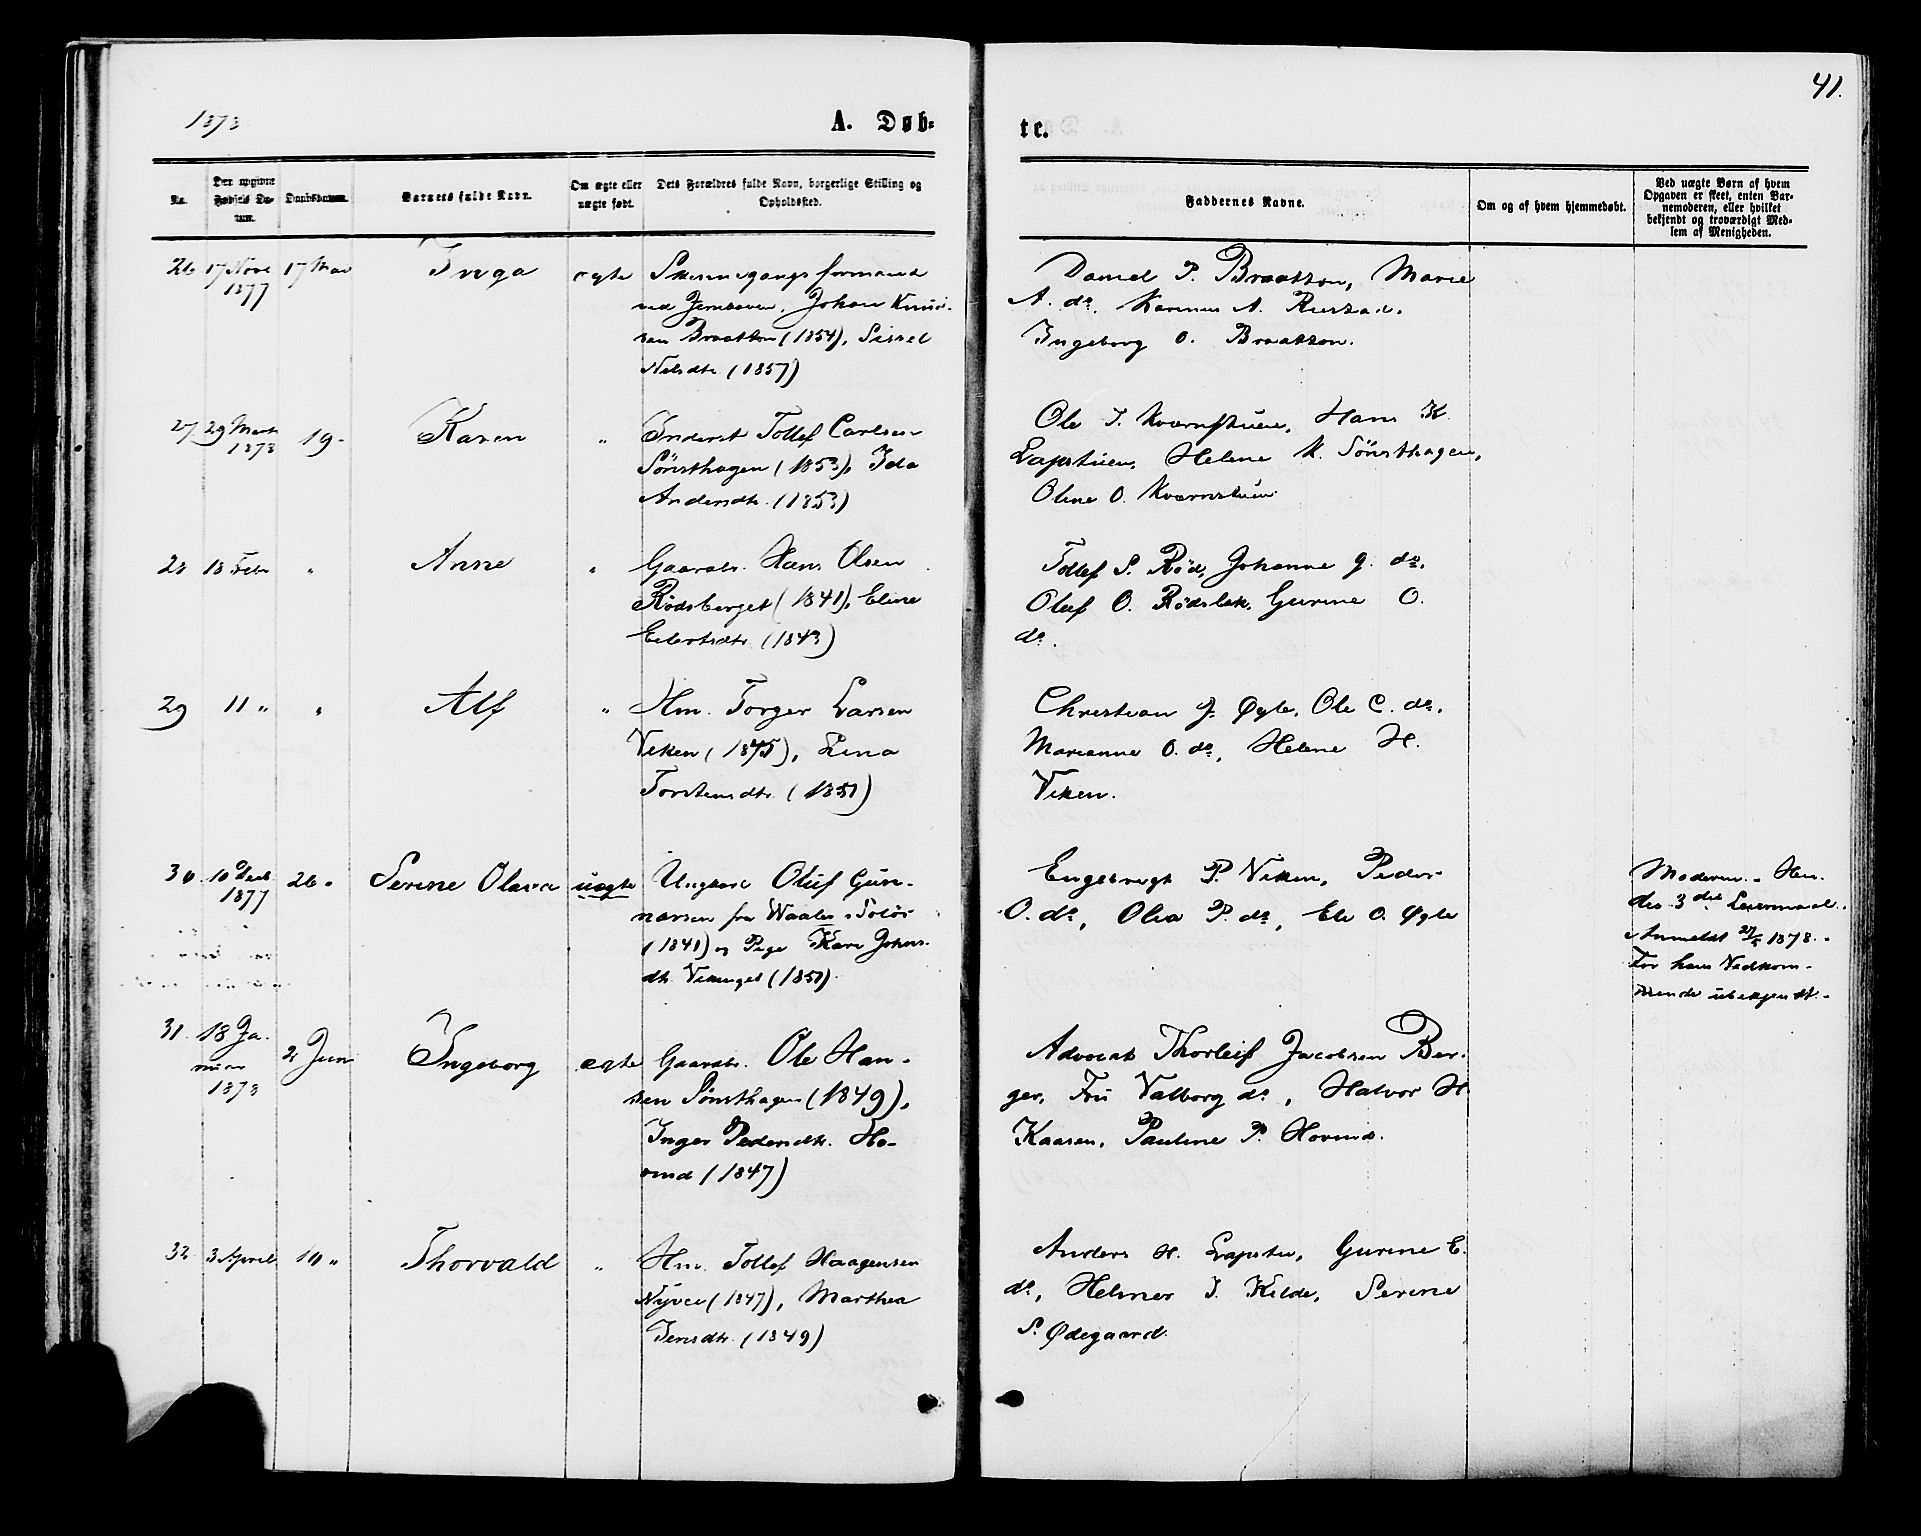 41.
1878
A. Døb-
te.
No.
Den opgivne Fødsels Datum.
Daabsdatum.
Barnets fulde Navn.
Om ægte eller uægte født.
Dets Forældres fulde Navn, borgerlige Stilling og Opholdssted.
Faddernes Navne.
Om og af hvem hjemmedøbt.
Ved uægte Børn af hvem Opgaven er skeet, enten Barnemoderen, eller hvilket bekjendt og troværdigt Medlem af Menigheden.
26 17 Nov 1877 17 Mai Inga ægte
formand
ved Jernbanen, Johan Knud-
sen Braatton (1854), Sissel
Nelsdtr. (1857)
Daniel P. Braatton, Marie
A. do. Karinus A. Rustad,
Ingeborg O. Braatton.
27 29 Marts 1878 19 - Karen "
Inderst Tollef Carlsen
Sønsthagen (1853), Ida
Andersdtr. (1853)
Ole J. Kvernstuen, Hans K.
Lapstuen, Helene K. Sønsthagen,
Oline O. Kvernstuen
28 18 Febr " Anne "
Gaardbr. Hans Olsen
Rødsberget (1841), Eline
Eilertsdtr. (1843)
Tollef S. Rød, Johanne G. do.
Oluf O. Rødsbak, Gurine O.
do.
29 11 " " Alf "
Hm. Torger Larsen
Viken (1845), Lina
Torstensdtr. (1851)
Christian J. Øgle, Ole C. do.
Marianne O. do, Helene H.
Viken.
30 10 Decb 1877 26 " Serine Olava uægte
Ungkarl Oluf Gun-
narsen fra Waaler i Solør
(1841) og Pige Kari Johns-
dtr. Vikenget (1851)
Engebregt P. Viken, Peder
O. do, Olia P. do, Ele O. Øgle
Moderen. - Hen-
des 3die Leiermaal.
Anmeldt 27/5 1878. -
For hans Vedkom-
mende ubekjendt. -
31. 18 Ja-
nuar
1878 2 Juni Ingeborg ægte
Gaardbr. Ole Han-
sen Sønsthagen (1849),
Inger Pedersdtr. Ho-
vind (1847)
Advocat Thorleif Jacobsen Ber-
ger, Fru Valborg do, Halvor H.
Kaasen, Pauline P. Hovind.
32 3 April 10 " Thorvald "
Hm. Tollef Haagensen
Nyvei (1847), Marthea
Jensdtr. (1849)
Anders H. Lapstu, Gurine E.
do, Helmer J. Kilde, Serine
S. Ødegaard.